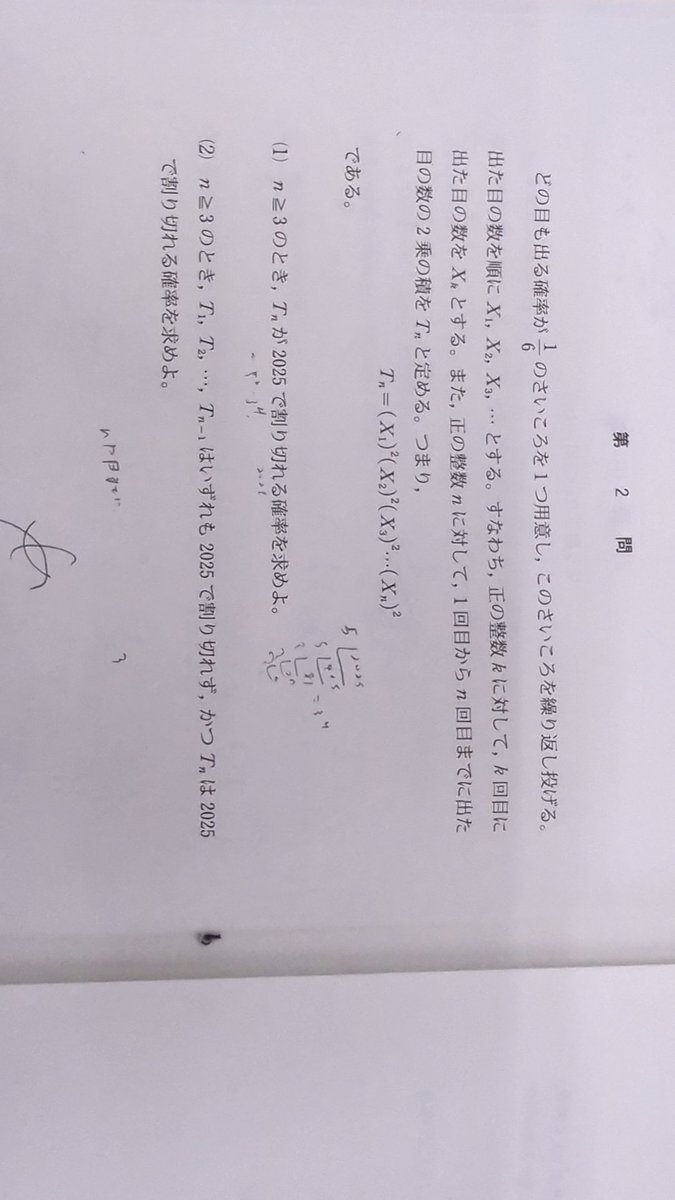 第 2 問
どの目も出る確率が 1/6 のさいころを1つ用意し,このさいころを繰り返し投げる。
出た目の数を順に X₁, X₂, X₃, … とする。すなわち,正の整数 k に対して,k 回目に
出た目の数を Xₖ とする。また,正の整数 n に対して,1 回目から n 回目までに出た
目の数の 2 乗の積を Tₙ と定める。つまり,
Tₙ=(X₁)²(X₂)²(X₃)²…(Xₙ)²
である。
(1) n≧3 のとき,Tₙ が 2025 で割り切れる確率を求めよ。
(2) n≧3 のとき,T₁, T₂, …, Tₙ₋₁ はいずれも 2025 で割り切れず,かつ Tₙ は 2025
で割り切れる確率を求めよ。